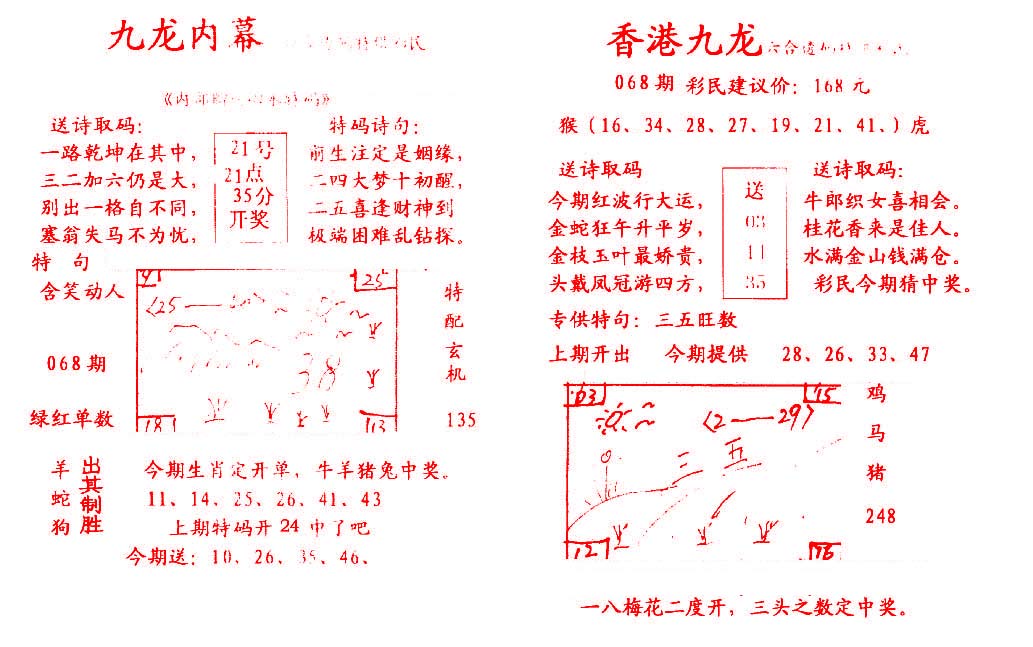 九龙内幕
送诗取码：
一路乾坤在其中，
三二加六仍是大，
别出一格自不同，
塞翁失马不为忧，
21号
21点
35分
开奖
特码诗句：
前生注定是姻缘，
二四大梦十初醒，
二五喜逢财神到
极端困难乱钻探。
特 句
含笑动人
068期
绿红单数
25
〈25——
38
18
13
特
配
玄
机
135
羊
蛇
狗
出其制胜
今期生肖定开单，牛羊猪兔中奖。
11、14、25、26、41、43
上期特码开 24 中了吧
今期送：10、26、35、46、
香港九龙
068期 彩民建议价：168 元
猴（16、34、28、27、19、21、41、）虎
送诗取码
今期红波行大运，
金蛇狂午升平岁，
金枝玉叶最娇贵，
头戴凤冠游四方，
送
03
11
35
送诗取码：
牛郎织女喜相会。
桂花香来是佳人。
水满金山钱满仓。
彩民今期猜中奖。
专供特句：三五旺数
上期开出 今期提供 28、26、33、47
03
15
〈2——29〉
三 五
12
16
鸡
马
猪
248
一八梅花二度开，三头之数定中奖。